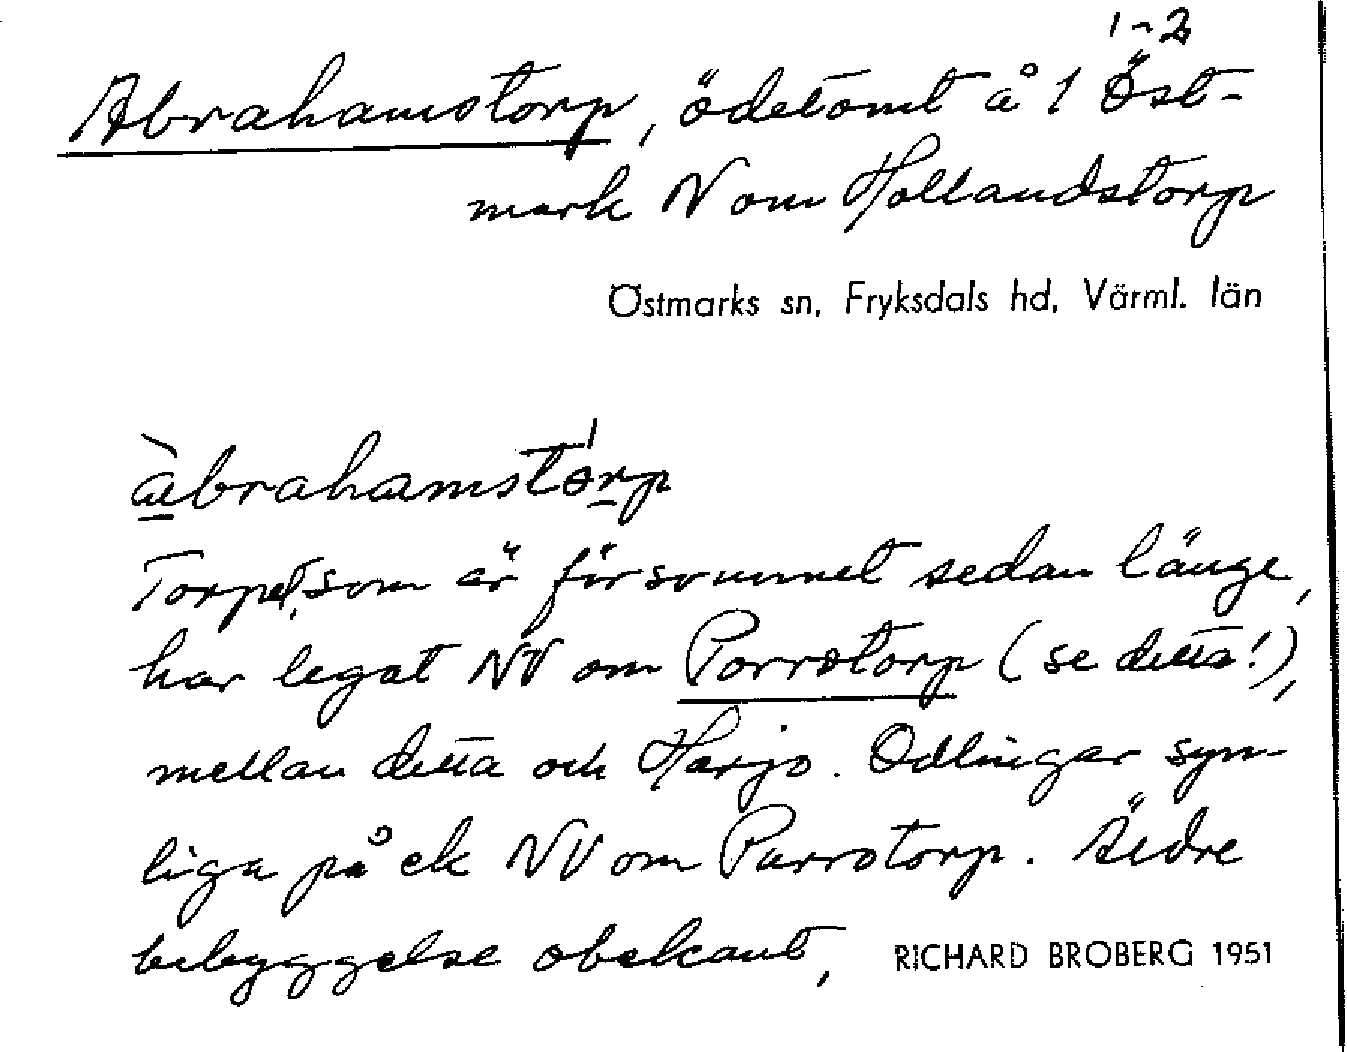 1-2
Abrahamstorp, ödetomt å 1 Öst-
mark N om Hollandstorp
Östmarks sn, Fryksdals hd, Värml. län
àbrahamstórp
Torpet, som är försvunnet sedan länge,
har legat NV om Porrotorp (se detta!),
mellan detta och Harjo. Odlingar syn-
liga på ek NV om Purrotorp. Äldre
bebyggelse obekant,
RICHARD BROBERG 1951